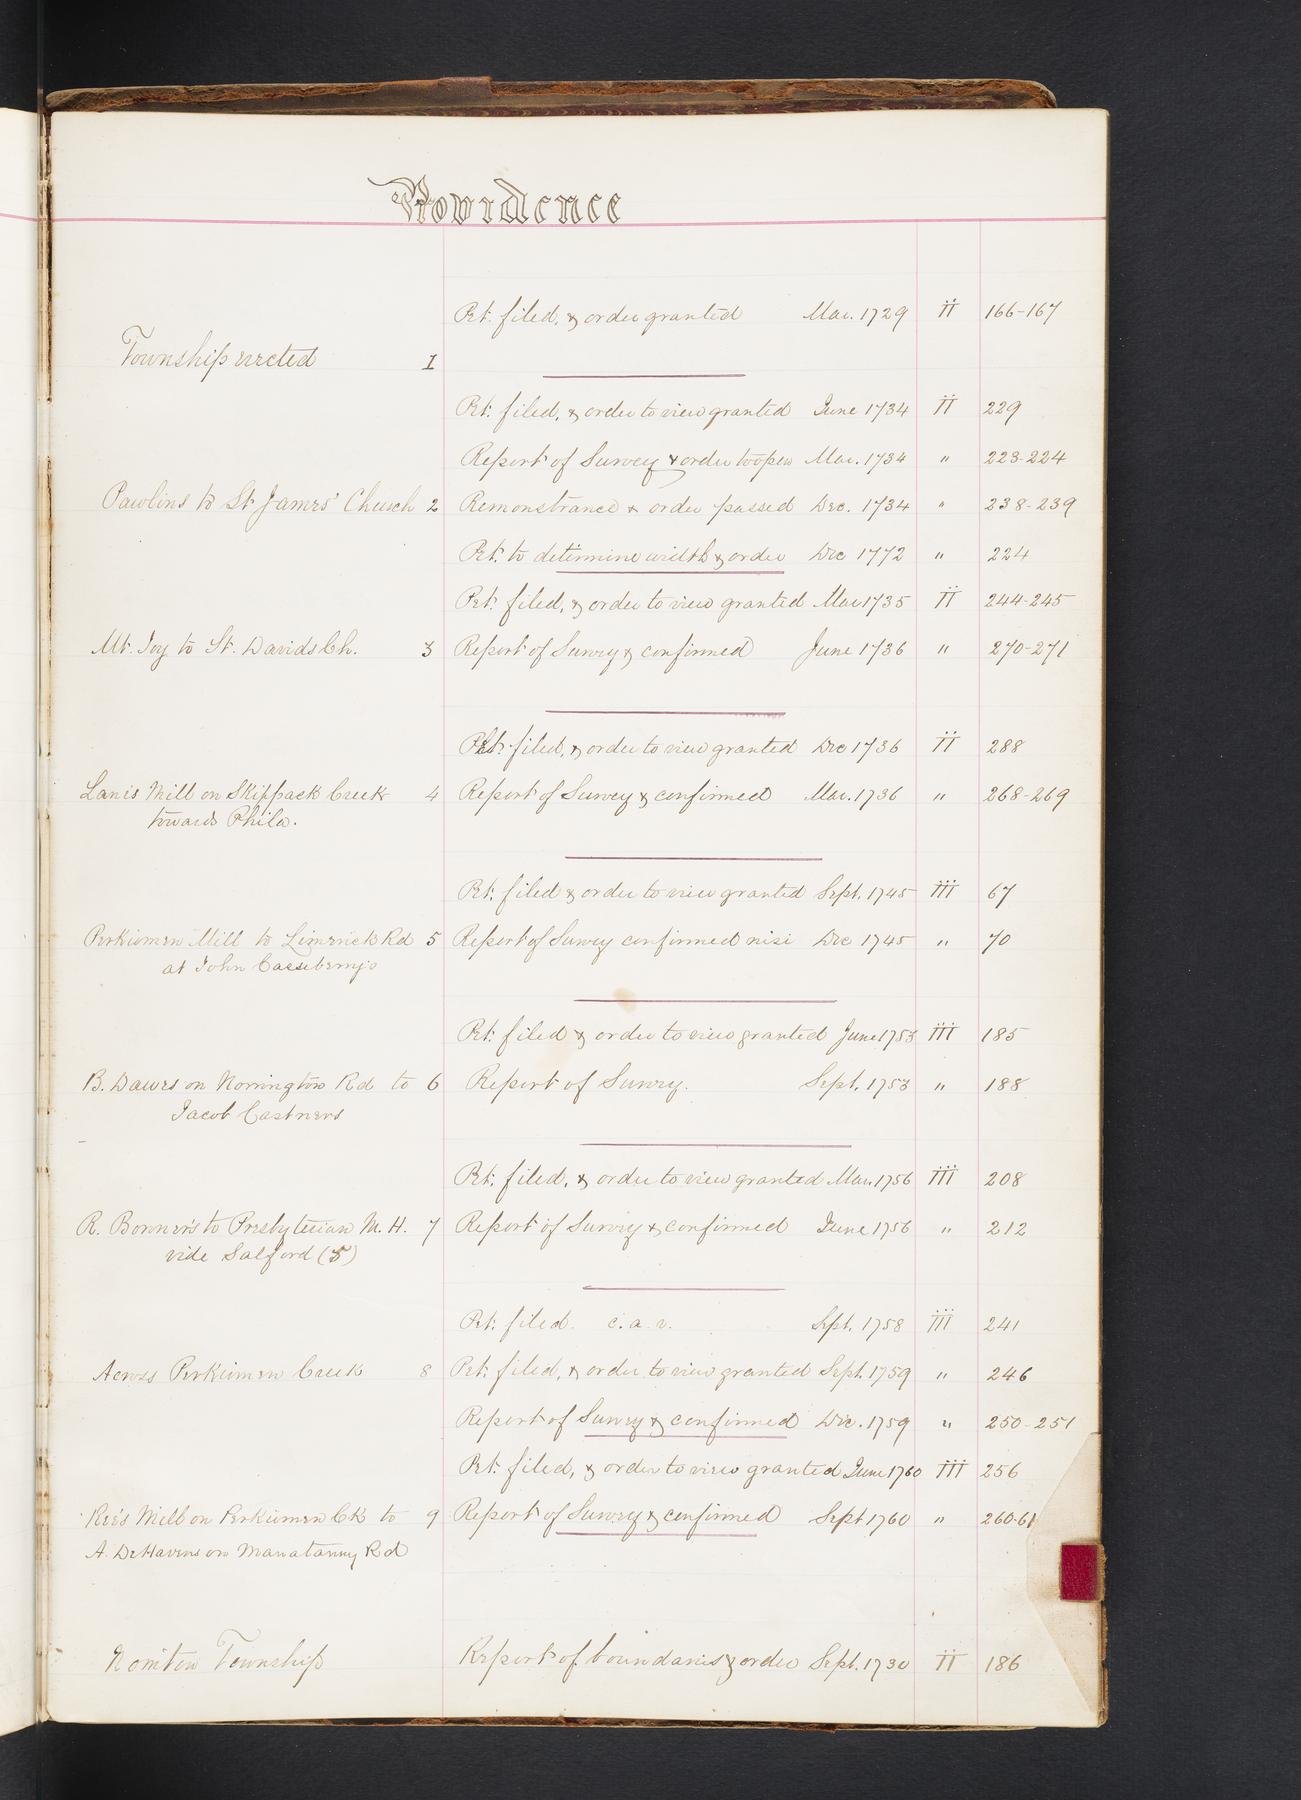 Providence
Pet. filed, & order granted Mar. 1729 II 166-167
Township erected 1
Pet. filed, & order to view granted June 1734 II 229
Report of Survey & order to open Mar. 1734 " 223-224
Pawlins to St James' Church 2 Remonstrance & order passed Dec. 1734 " 238-239
Pet. to determine width & order Dec 1772 " 224
Pet. filed, & order to view granted Mar 1735 II 244-245
Mt. Joy to St. Davids Ch. 3 Report of Survey & confirmed June 1736 " 270-271
Pet. filed, & order to view granted Dec 1736 II 288
Lanes Mill on Skippack Creek 4 Report of Survey & confirmed Mar. 1736 " 268-269
towards Phila.
Pet. filed & order to view granted Sept. 1745 III 67
Perkiomen Mill to Limerick Rd 5 Report of Survey confirmed nisi Dec 1745 " 70
at John Casseberrys
Pet. filed & order to view granted June 1753 III 185
B. Dawes on Norrington Rd to 6 Report of Survey. Sept. 1753 " 188
Jacob Castners
Pet. filed, & order to view granted Mar. 1756 III 208
R. Bonner's to Presbyterian M. H. 7 Report of Survey & confirmed June 1756 " 212
vide Salford (5)
Pet. filed. c. a. v. Sept. 1758 III 241
Across Perkiomen Creek 8 Pet. filed, & order to view granted Sept. 1759 " 246
Report of Survey & confirmed Dec. 1759 " 250-251
Pet. filed, & order to view granted June 1760 III 256
Ree's Mill on Perkiomen Ck to 9 Report of Survey & confirmed Sept 1760 " 260-61
A. DeHavens on Manatanny Rd
Norriton Township Report of boundaries & order Sept. 1730 II 186